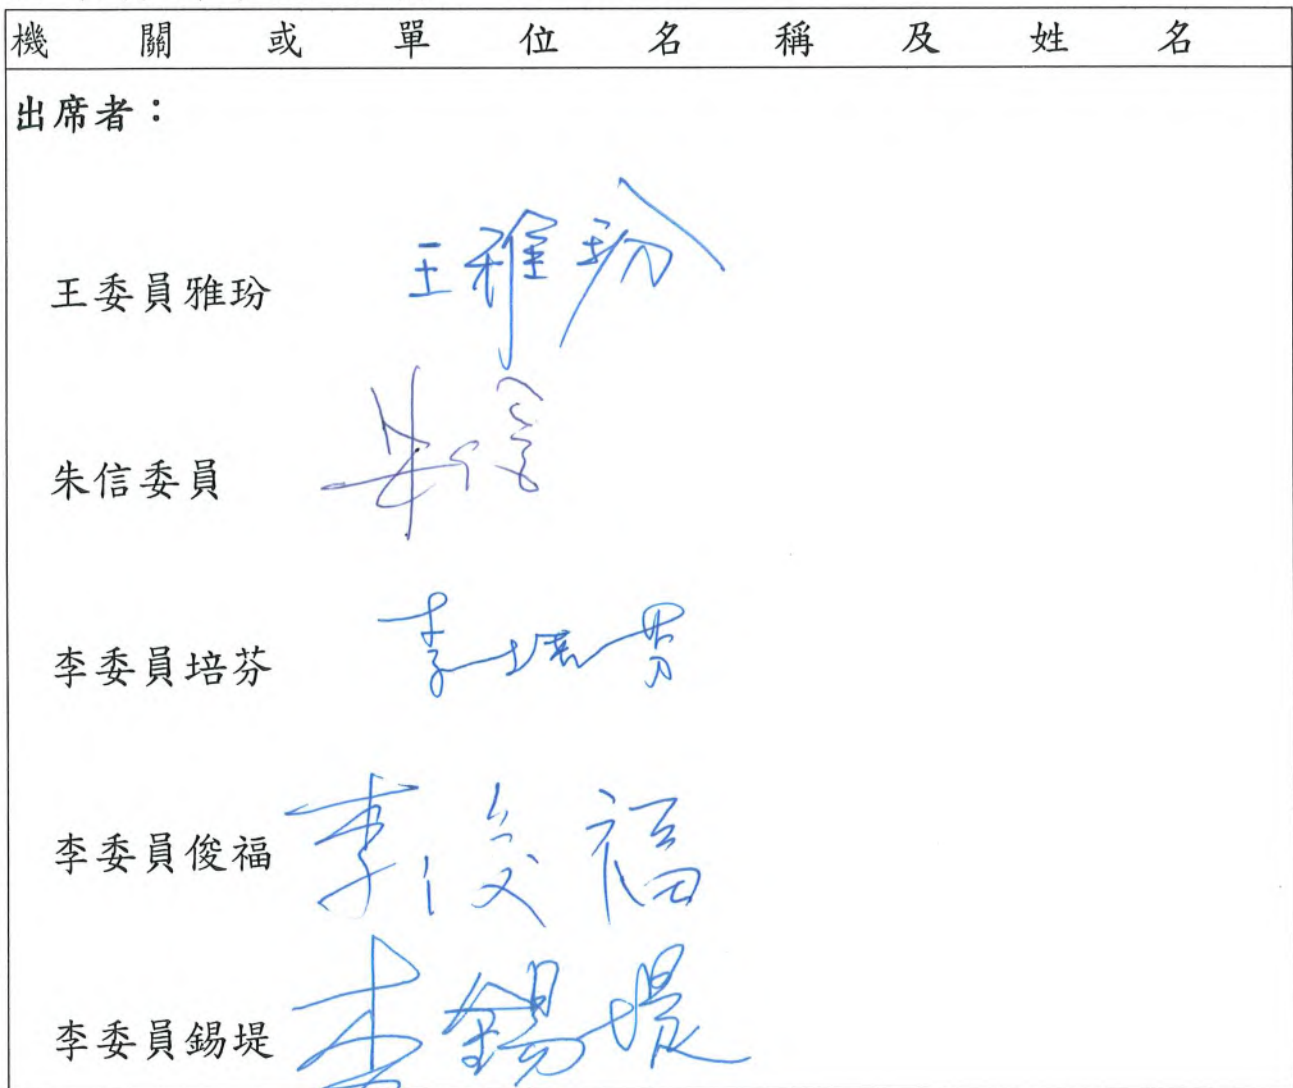 機關或單位名稱及姓名
出席者：
王委員雅玢 王雅玢
朱信委員 朱信
李委員培芬 李培芬
李委員俊福 李俊福
李委員錫堤 李錫堤